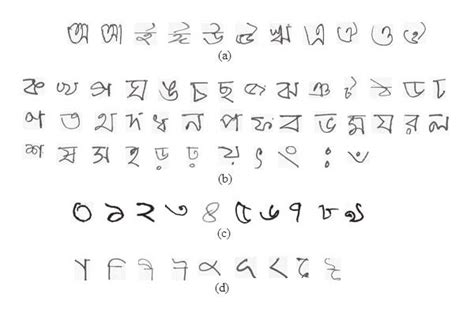 অ আ ই ঈ উ ঊ ঋ এ ঐ ও ঔ
(a)
ক খ গ ঘ ঙ চ ছ জ ঝ ঞ ট ঠ ড ঢ
ণ ত থ দ ধ ন প ফ ব ভ ম য র ল
শ ষ স হ ড় ঢ় য় ৎ ং ঃ ঁ
(b)
০ ১ ২ ৩ ৪ ৫ ৬ ৭ ৮ ৯
(c)
(d)